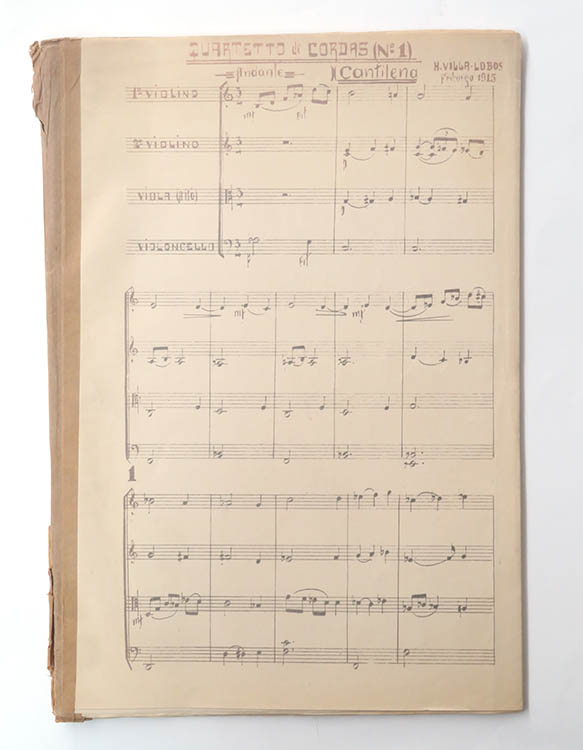 QUARTETTO di CORDAS (Nº 1)
Andante
Cantilena
H. VILLA-LOBOS
1º VIOLINO
mf
2º VIOLINO
VIOLA (Alto)
VIOLONCELLO
p
mf
mf
1
mf